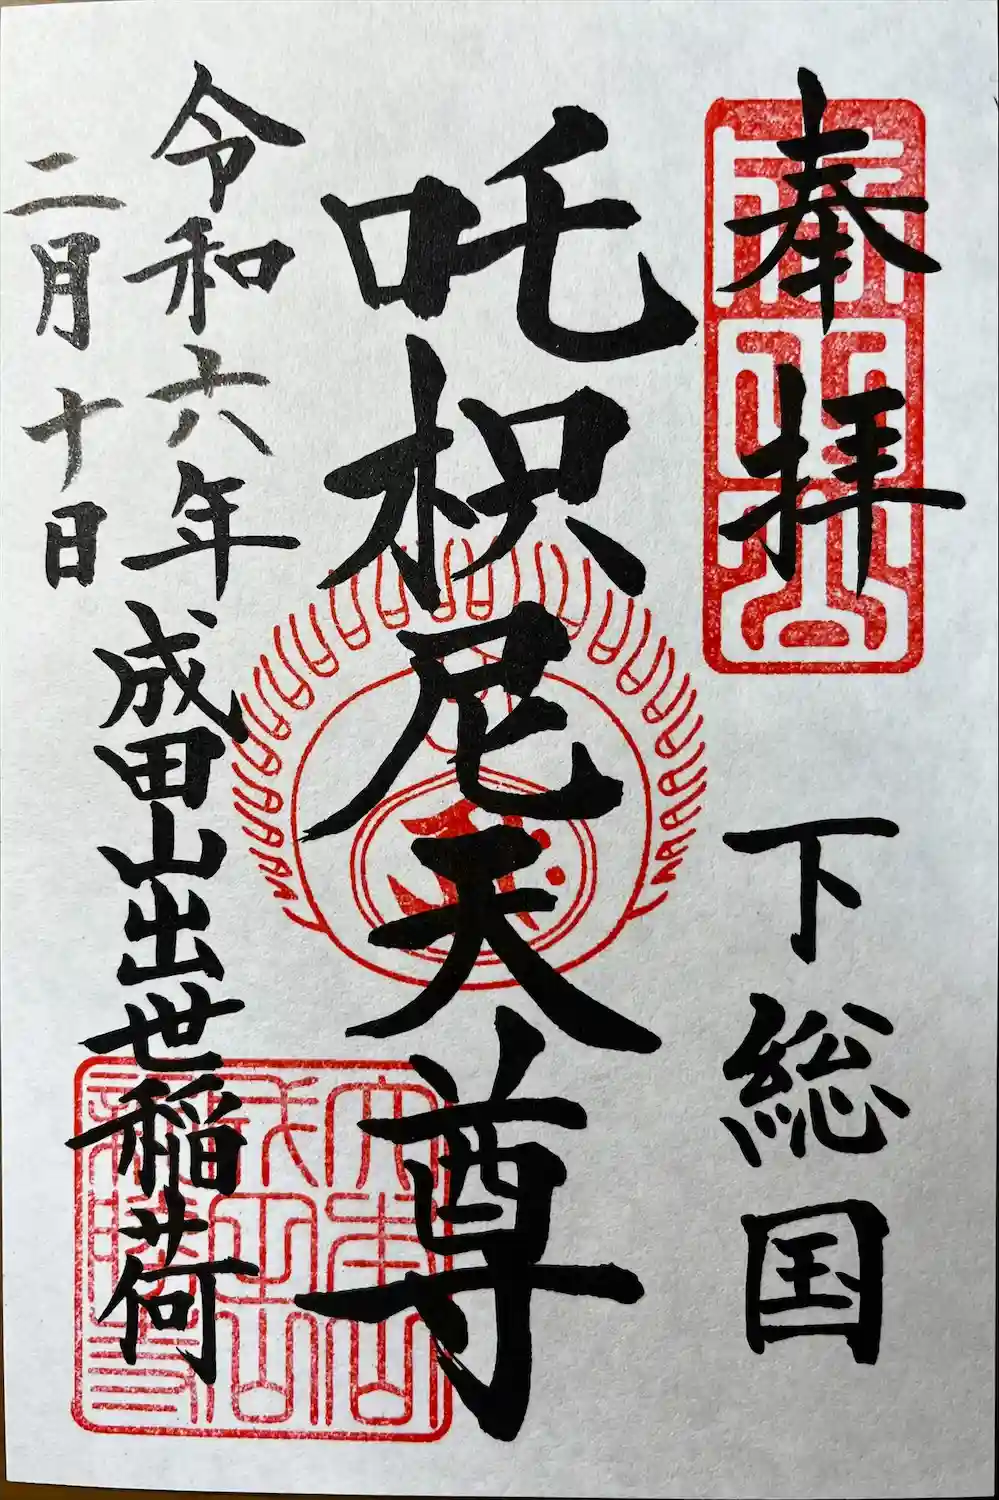 奉拝 下総国
吒枳尼天尊
令和六年 成田山出世稲荷
二月十日